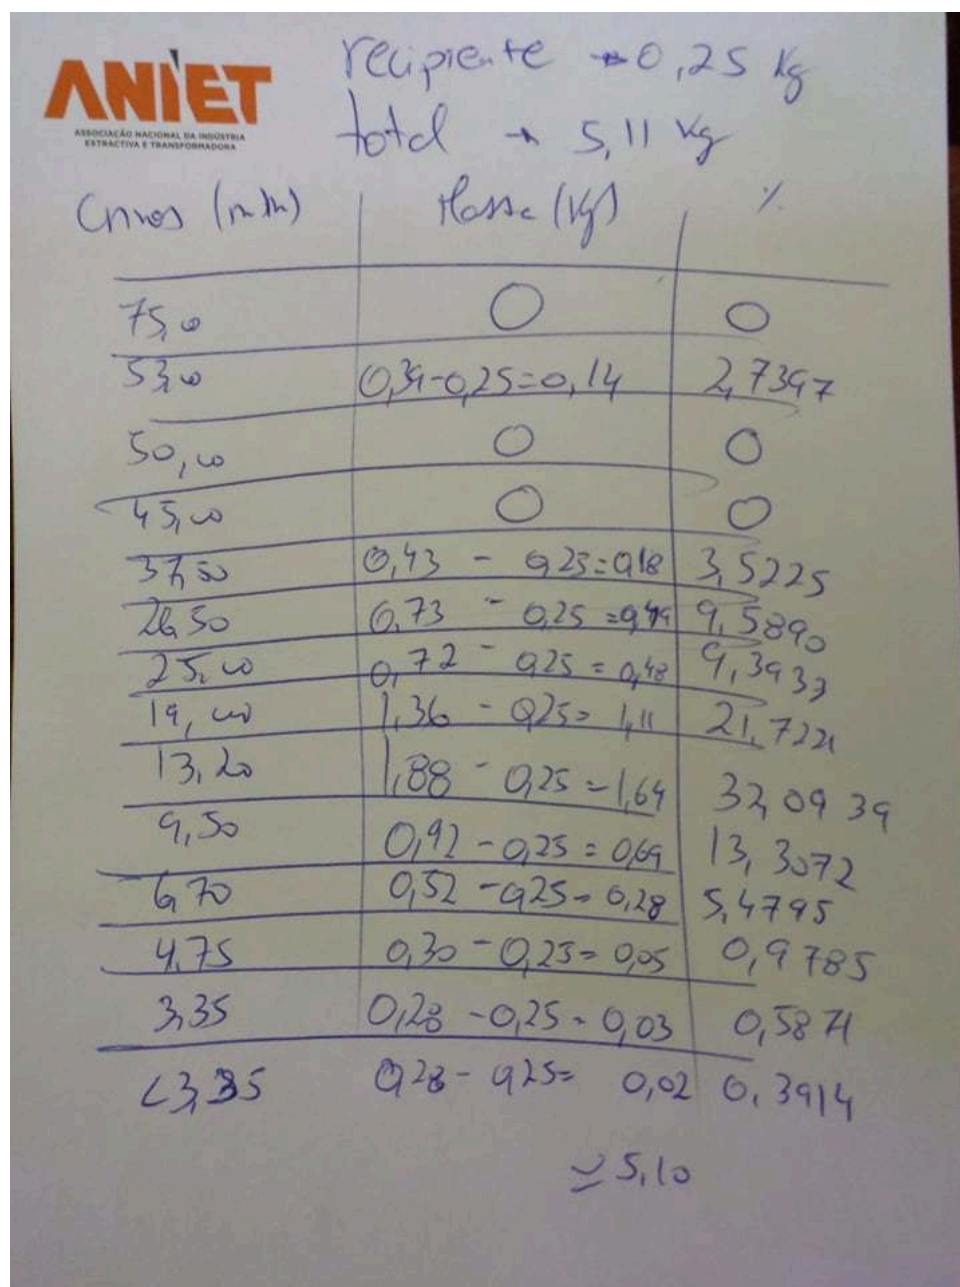 ANIET
ASSOCIAÇÃO NACIONAL DA INDÚSTRIA
EXTRACTIVA E TRANSFORMADORA
recipiente → 0,25 Kg
total → 5,11 Kg
Crivos (mm) Massa (Kg) %
75,00 0 0
53,00 0,39-0,25=0,14 2,7397
50,00 0 0
45,00 0 0
37,50 0,43 - 0,25=0,18 3,5225
26,50 0,73 - 0,25 =0,49 9,5890
25,00 0,72 - 0,25 = 0,48 9,3933
19,00 1,36 - 0,25= 1,11 21,7221
13,20 1,88 - 0,25 = 1,64 32,0939
9,50 0,92 - 0,25 = 0,69 13,3072
6,70 0,52 - 0,25= 0,28 5,4795
4,75 0,30 - 0,25= 0,05 0,9785
3,35 0,28 - 0,25= 0,03 0,5871
<3,35 0,28 - 0,25= 0,02 0,3914
≃ 5,10